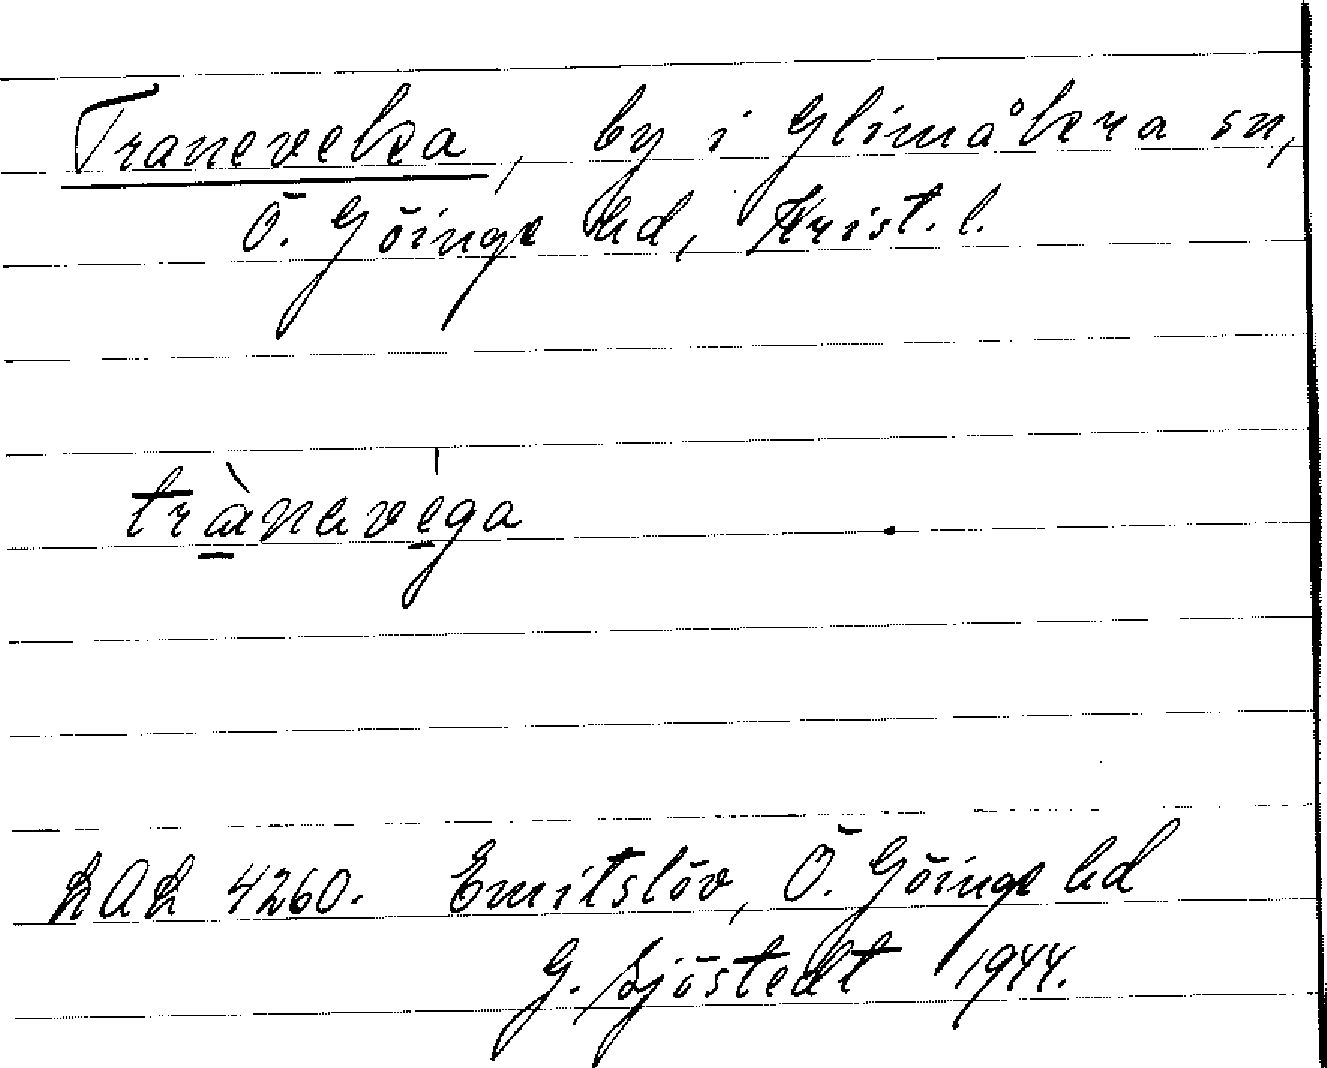 Traneveka, by i Glimåkra sn,
Ö. Göinge hd, Krist. l.
trànavega
LAL 4260. Emitslöv, Ö. Göinge hd
G. Sjöstedt 1944.